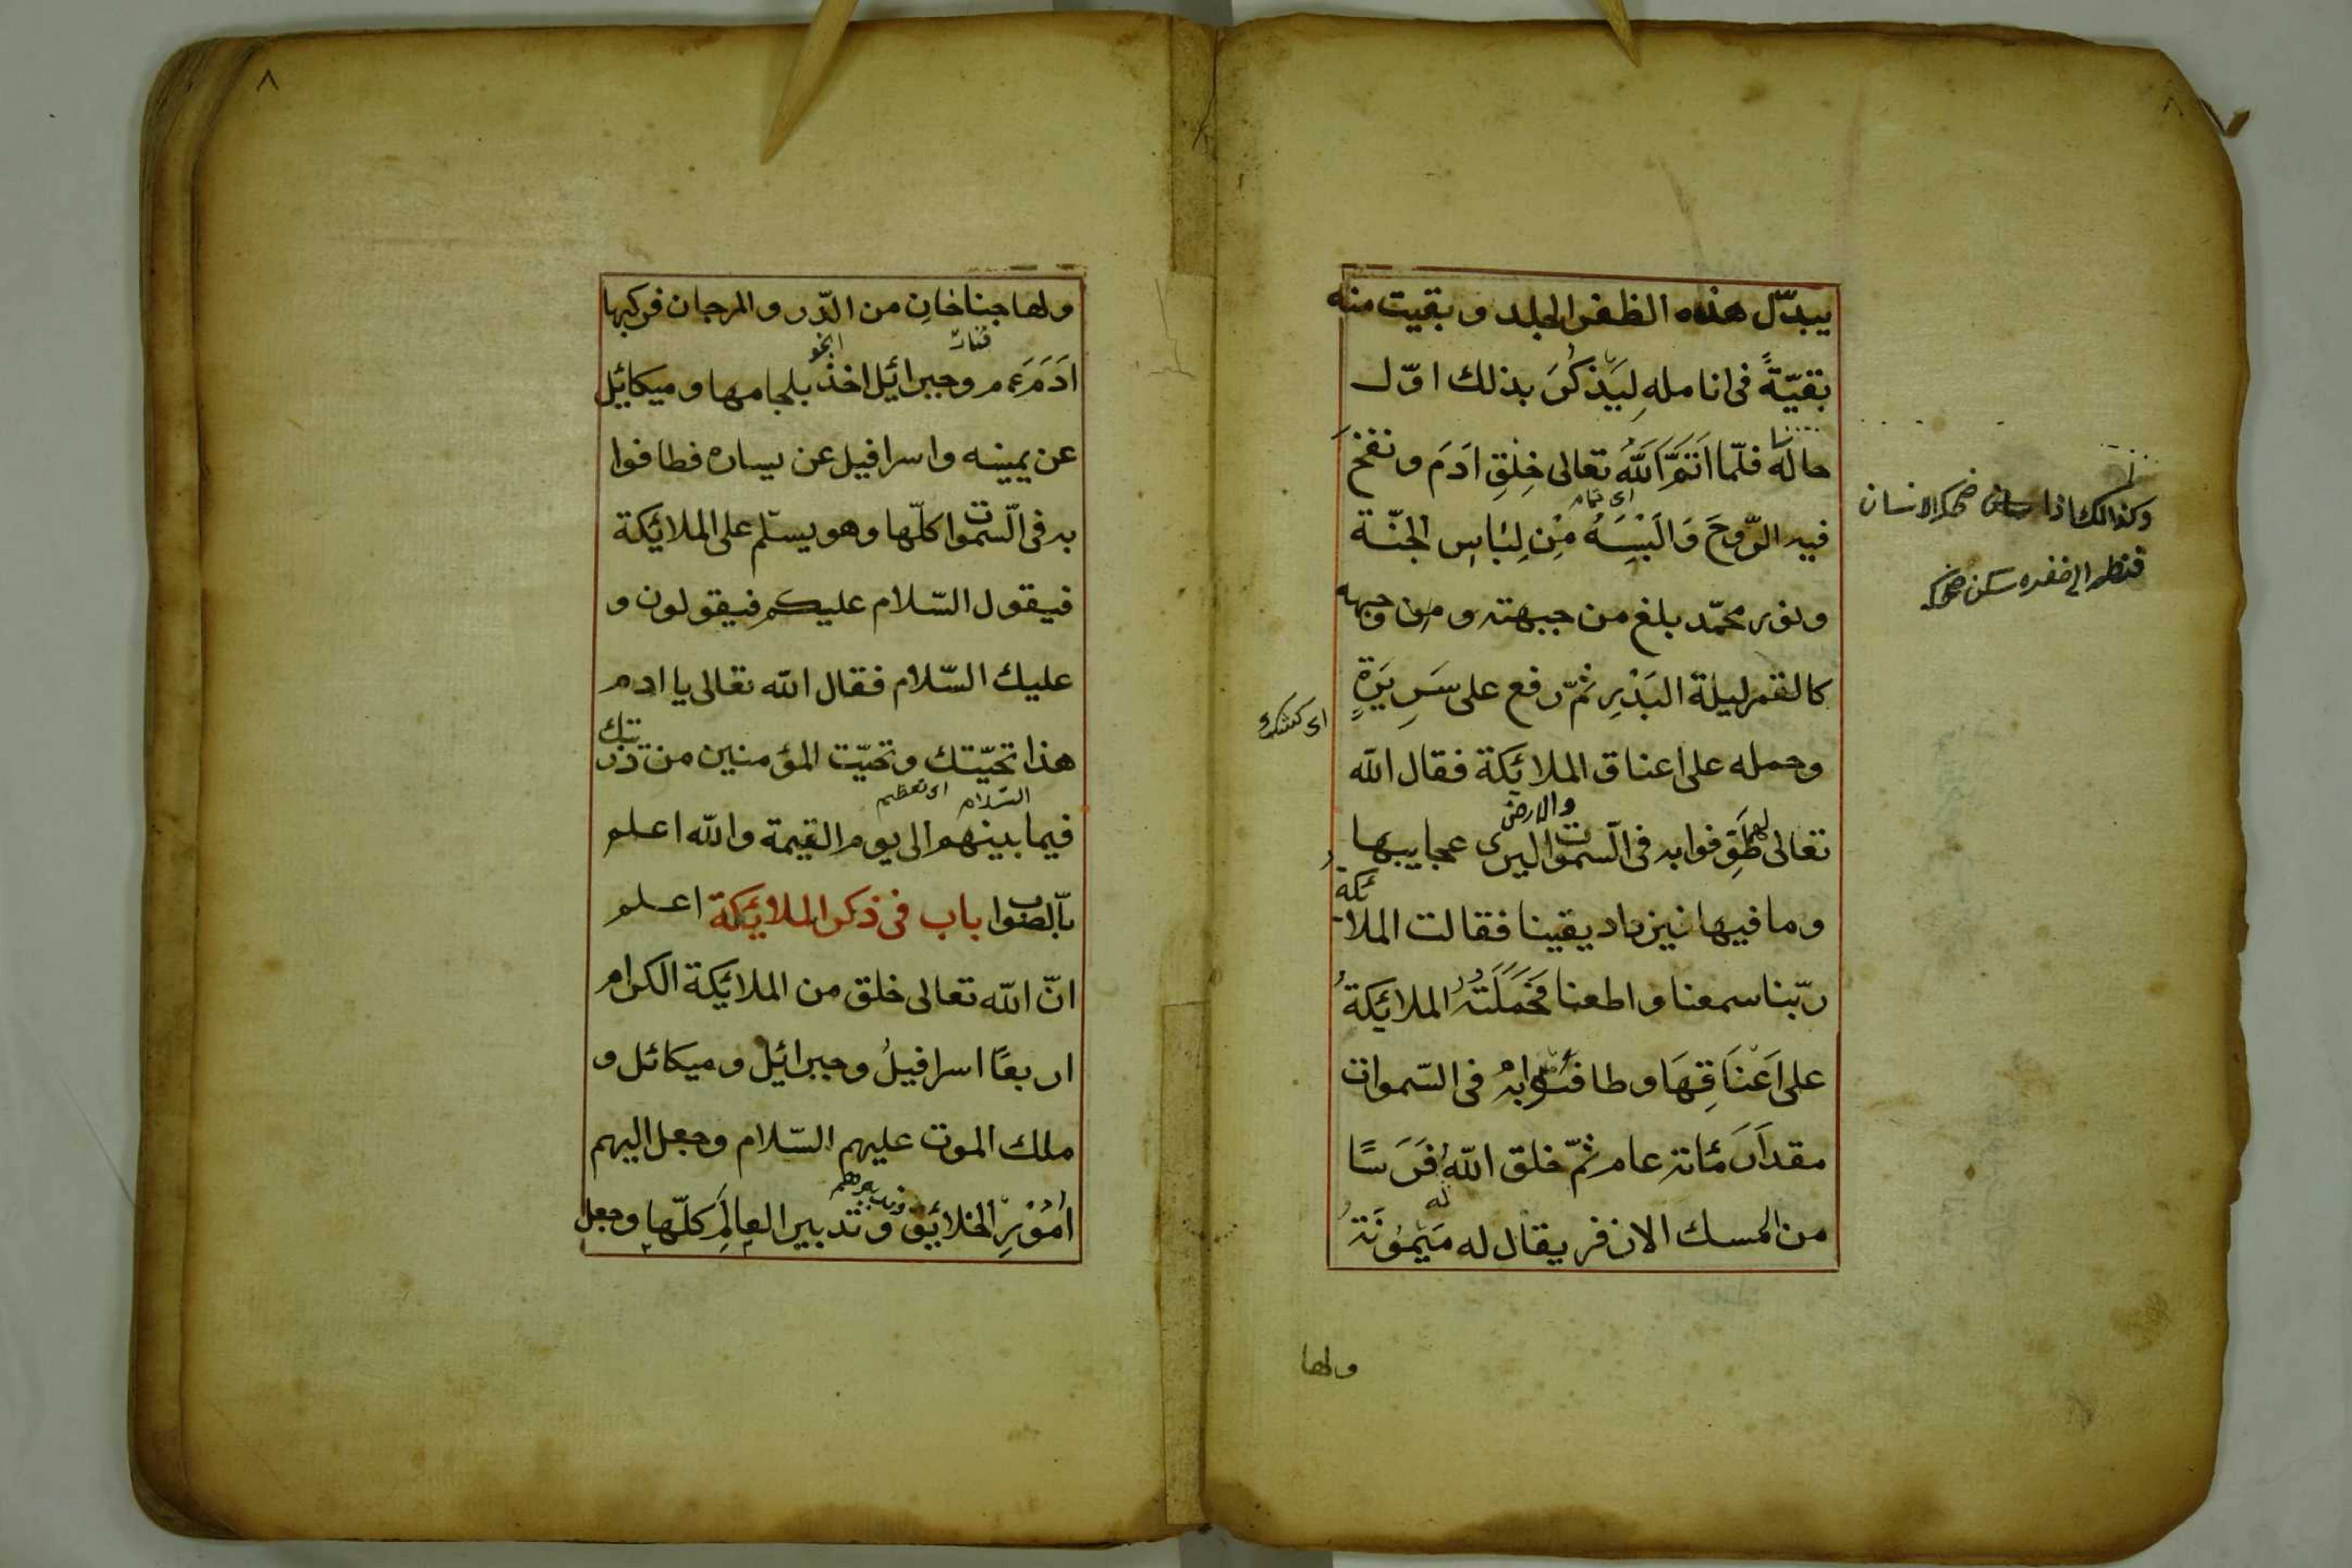 يبدّل هذه الظفر الجلد و بقيت منه
بقيّةً فى انامله لِيَذكُرَ بذلك اوّل
حاله فلمّا اَتَمَّ اللّٰهُ تعالى خلقِ ادَمَ و نفخَ
اى تمام
فيه الرّوحَ وَ اَلْبَسَهُ مِنْ لِبَاسِ الجنّة
و نور محمّد بلغ من جبهته و من وجهه
كالقمر ليلة البَدْرِ ثمّ رفع على سَرِيرَةٍ
وحمله على اعناق الملائكة فقال اللّٰه
والارض
تعالى طَوِّفوا به فى السّموات ليرى عجايبها
و ما فيها نيزداد يقينا فقالت الملائكة
ربّنا سمعنا و اطعنا فَحَمَلَتْهُ الملائكةُ
على اَعْنَاقِهَا و طافُوا بهْ فى السّموات
مقدارَ مَائة عام ثمّ خلق اللّٰهُ فَرَسًا
من المسك الاذفر يقال له مَيْمُونَةُ
ولها
وكذالك اذا ضحك الانسان
فنظر الى ضفره سكن ضحكه
٨
ولها جناحانِ من الدّر و المرجان فركبها
ادَمَ عم و جبرائيل اخذ بلجامها و ميكائيل
عن يمينه و اسرافيل عن يساره فطافوا
به فى السّموات كلّها و هو يسلّم على الملائكة
فيقول السّلام عليكم فيقولون و
عليك السّلام فقال اللّٰه تعالى يا ادم
هذا تحيّتك و تحيّت المؤمنين من ذرّيّتك
السّلام اى تعظيم
فيما بينهم الى يوم القيمة و اللّٰه اعلم
بالصّواب باب فى ذكر الملائكة اعلم
انّ اللّٰه تعالى خلق من الملائكة الكرام
اربعًا اسرافيلُ و جبرائيل و ميكائل و
ملك الموت عليهم السّلام و جعل اليهم
اُمُوْرِ الخلائق و تدبير العالَمِ كلّها و جعل